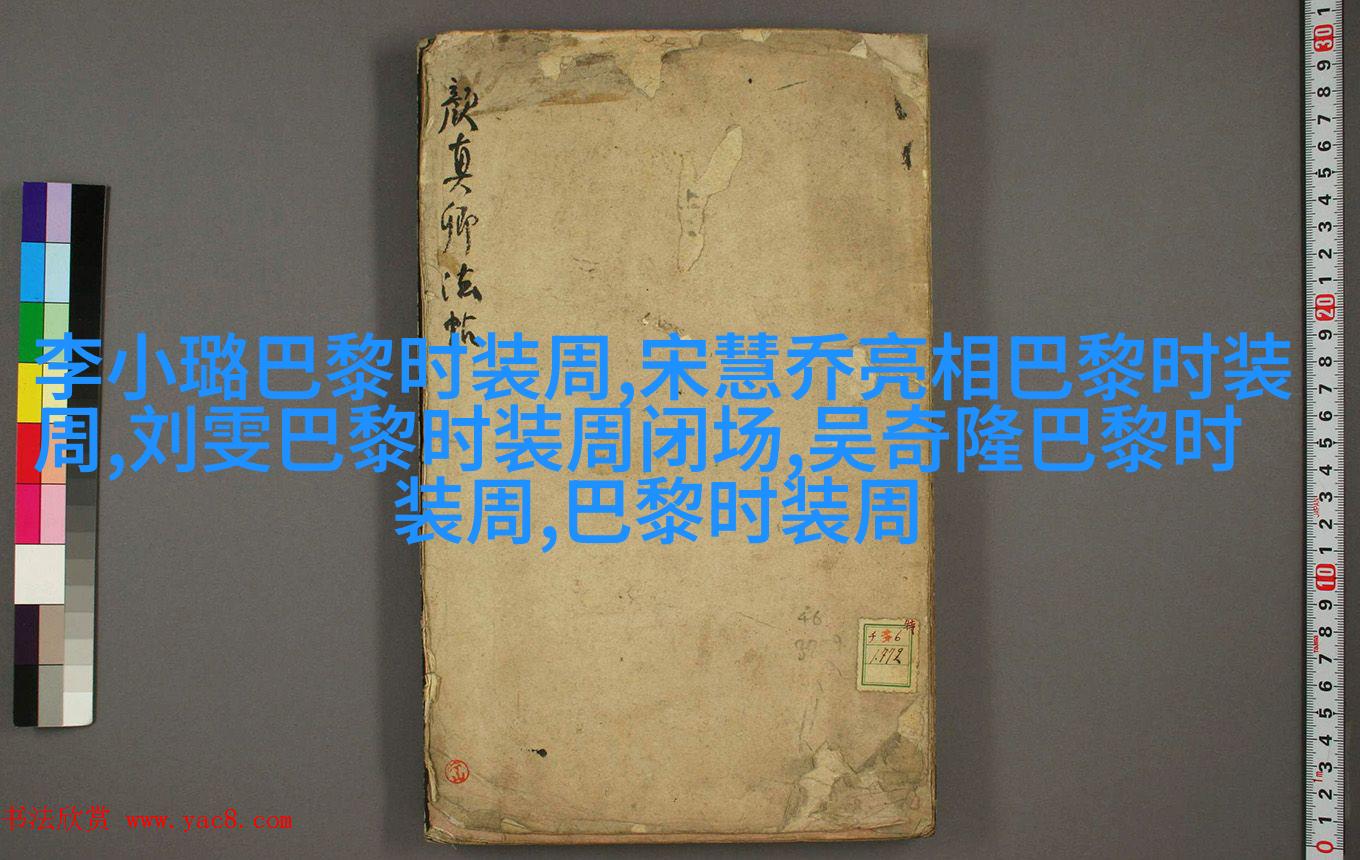 顔真卿法帖
李小璐巴黎时装周,宋慧乔亮相巴黎时装
周,刘雯巴黎时装周闭场,吴奇隆巴黎时
装周,巴黎时装周
46
特
1772
书法欣赏 www.yac8.com